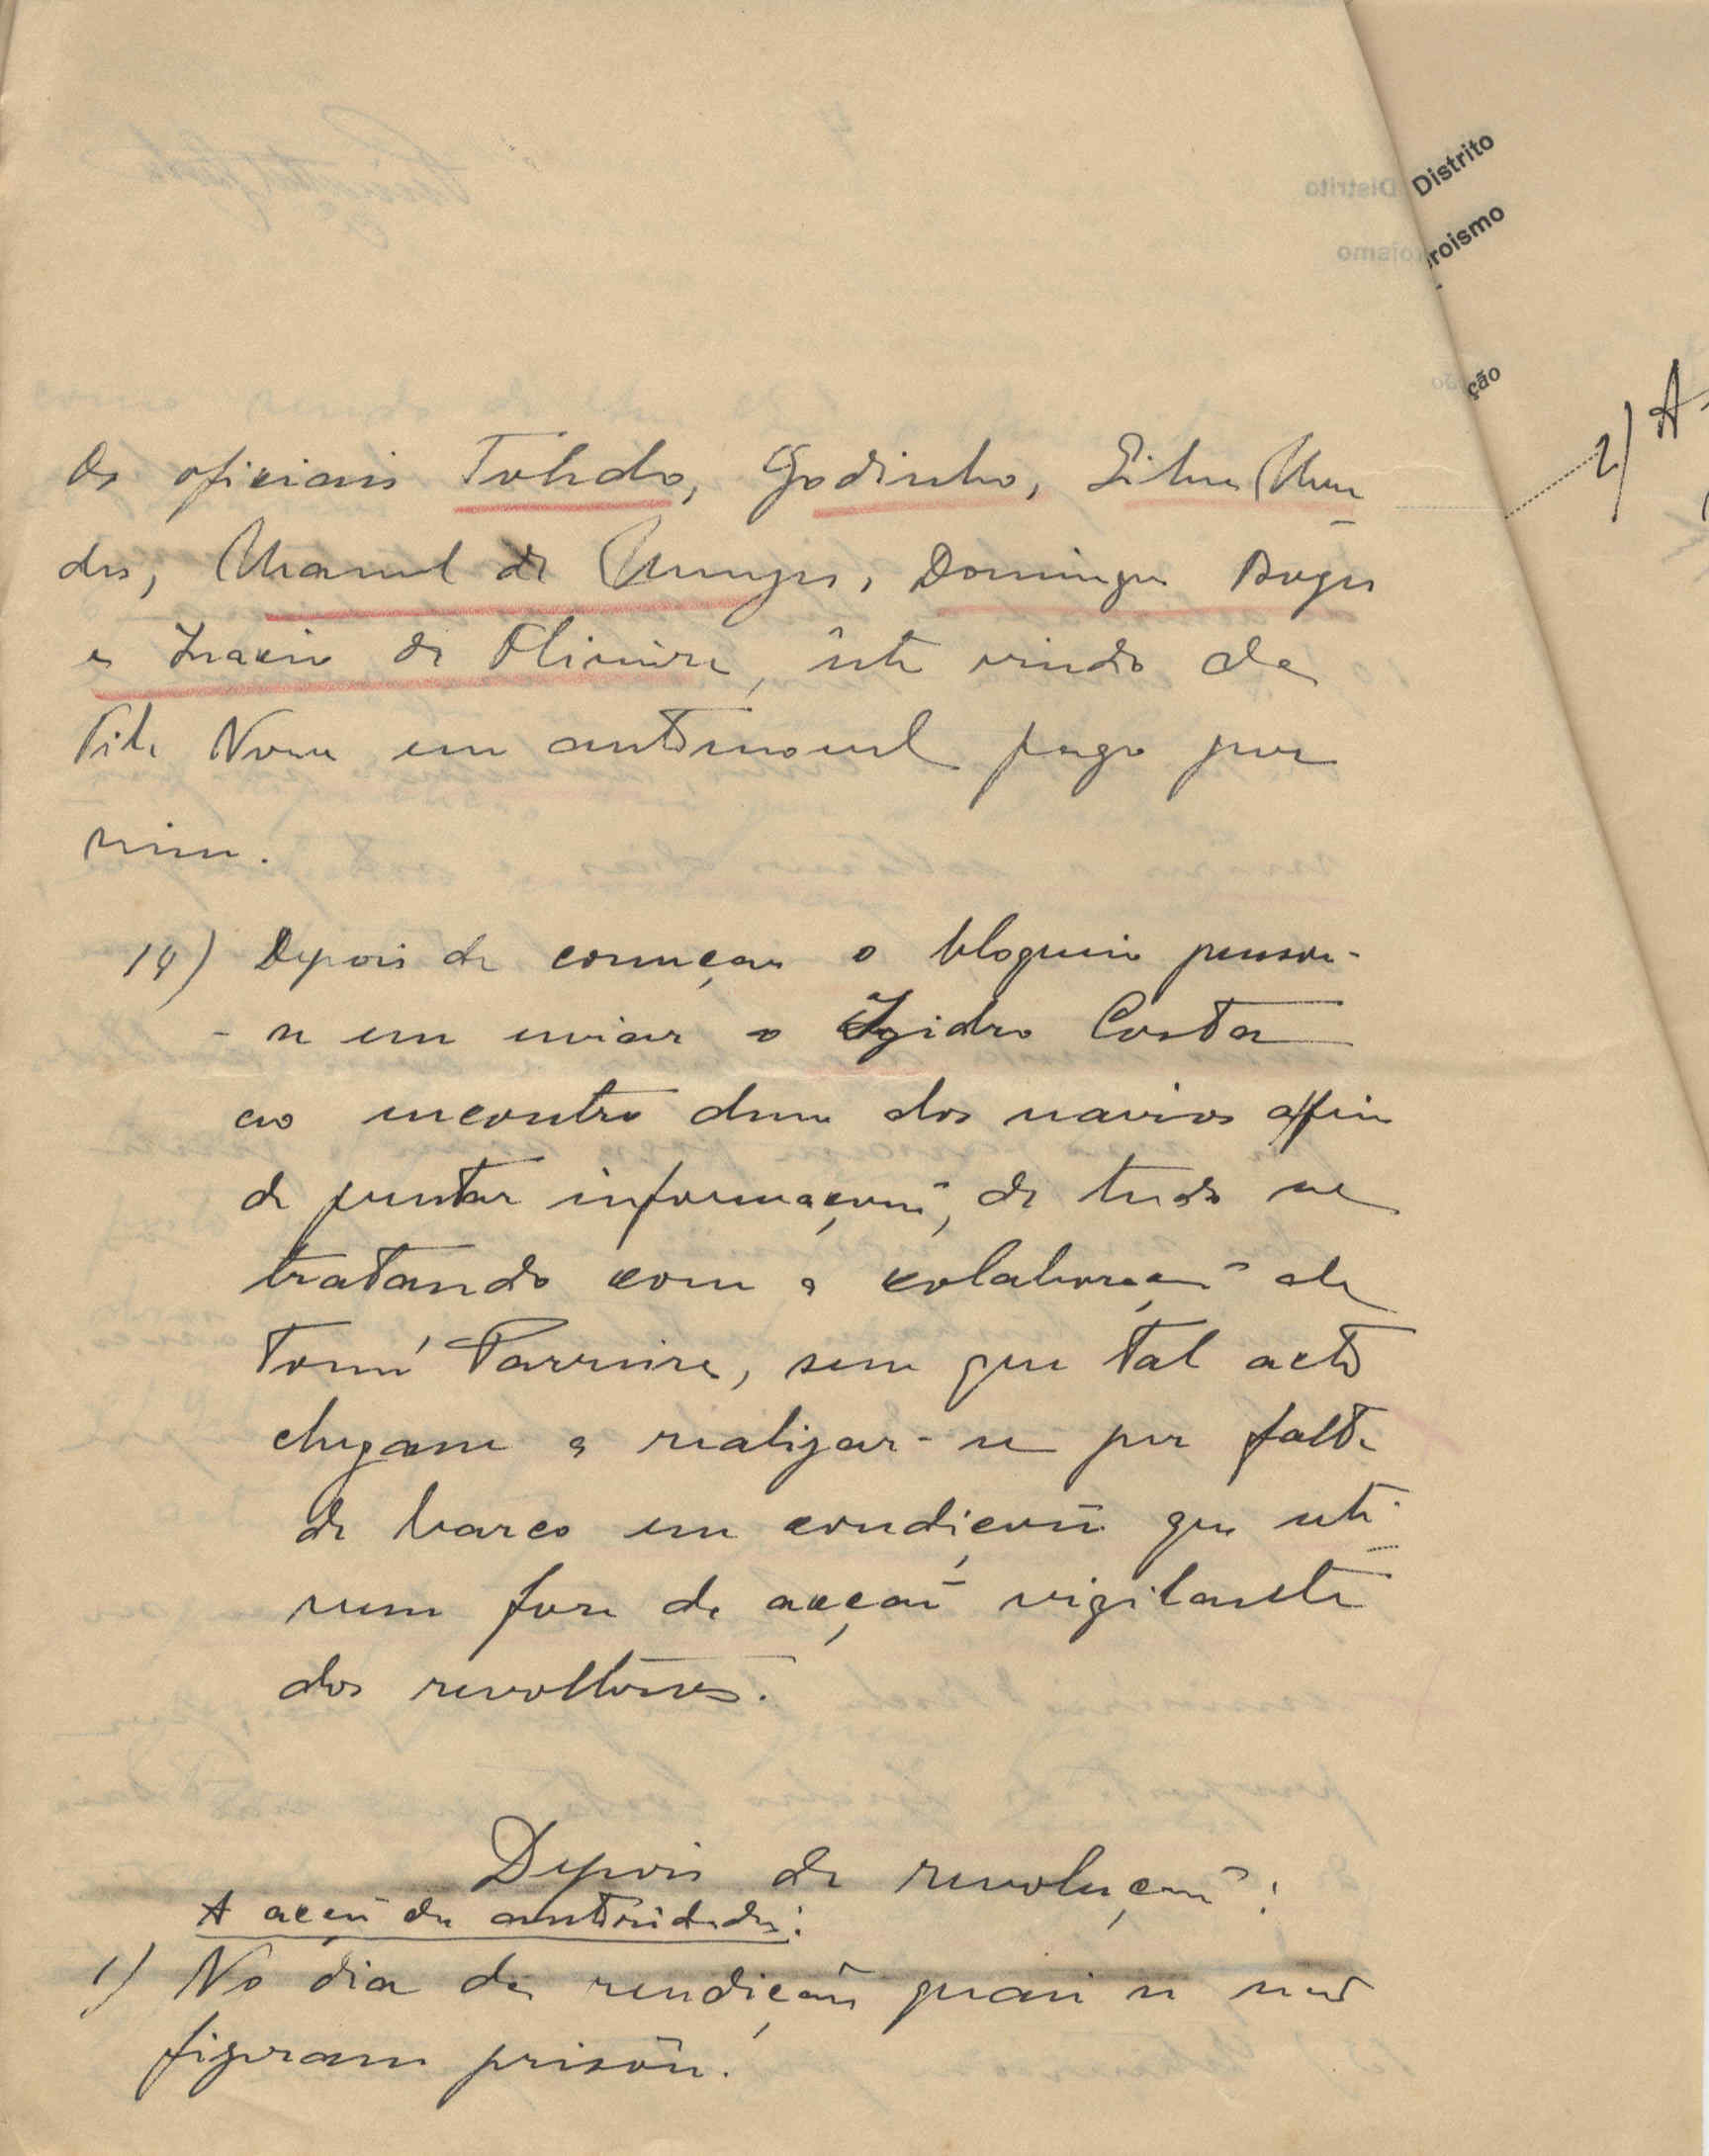 Os oficiais Toledo, Godinho, Silva Men
des, Manuel de Menezes, Domingos Borges
e Inacio de Oliveira, este vindo da
Vila Nova em automovel pago por
mim.
14) Depois de começar o bloqueio pensou-
- se em enviar o Izidro Costa
ao encontro dum dos navios afim
de prestar informaçoẽs, de tudo se
tratando com a colaboraçaõ de
Tomé Parreira, sem que tal acto
chegasse a realizar-se por falta
de barco em condiçoẽs que esti
vesse fora da acçaõ vigilante
dos revoltosos.
Depois da revoluçaõ:
A acçaõ das autoridades:
1) No dia da rendiçaõ quasi se naõ
fizeram prisoẽs.
Distrito
roismo
ção
2) A